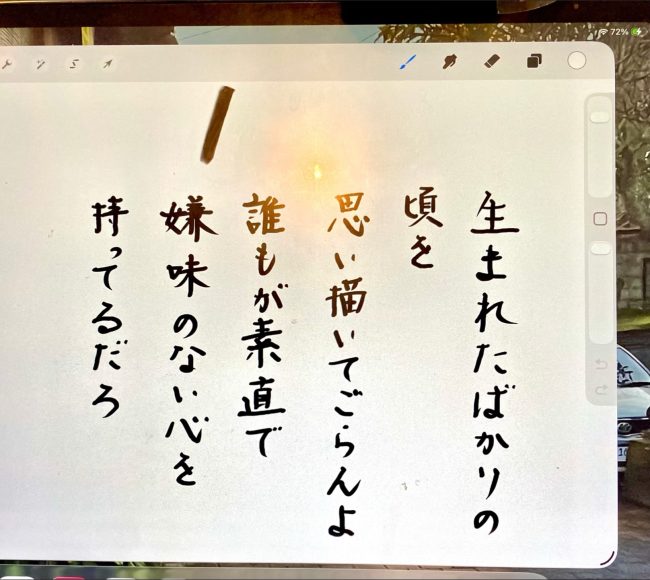 72%
生まれたばかりの
頃を
思い描いてごらんよ
誰もが素直で
嫌味のない心を
持ってるだろ